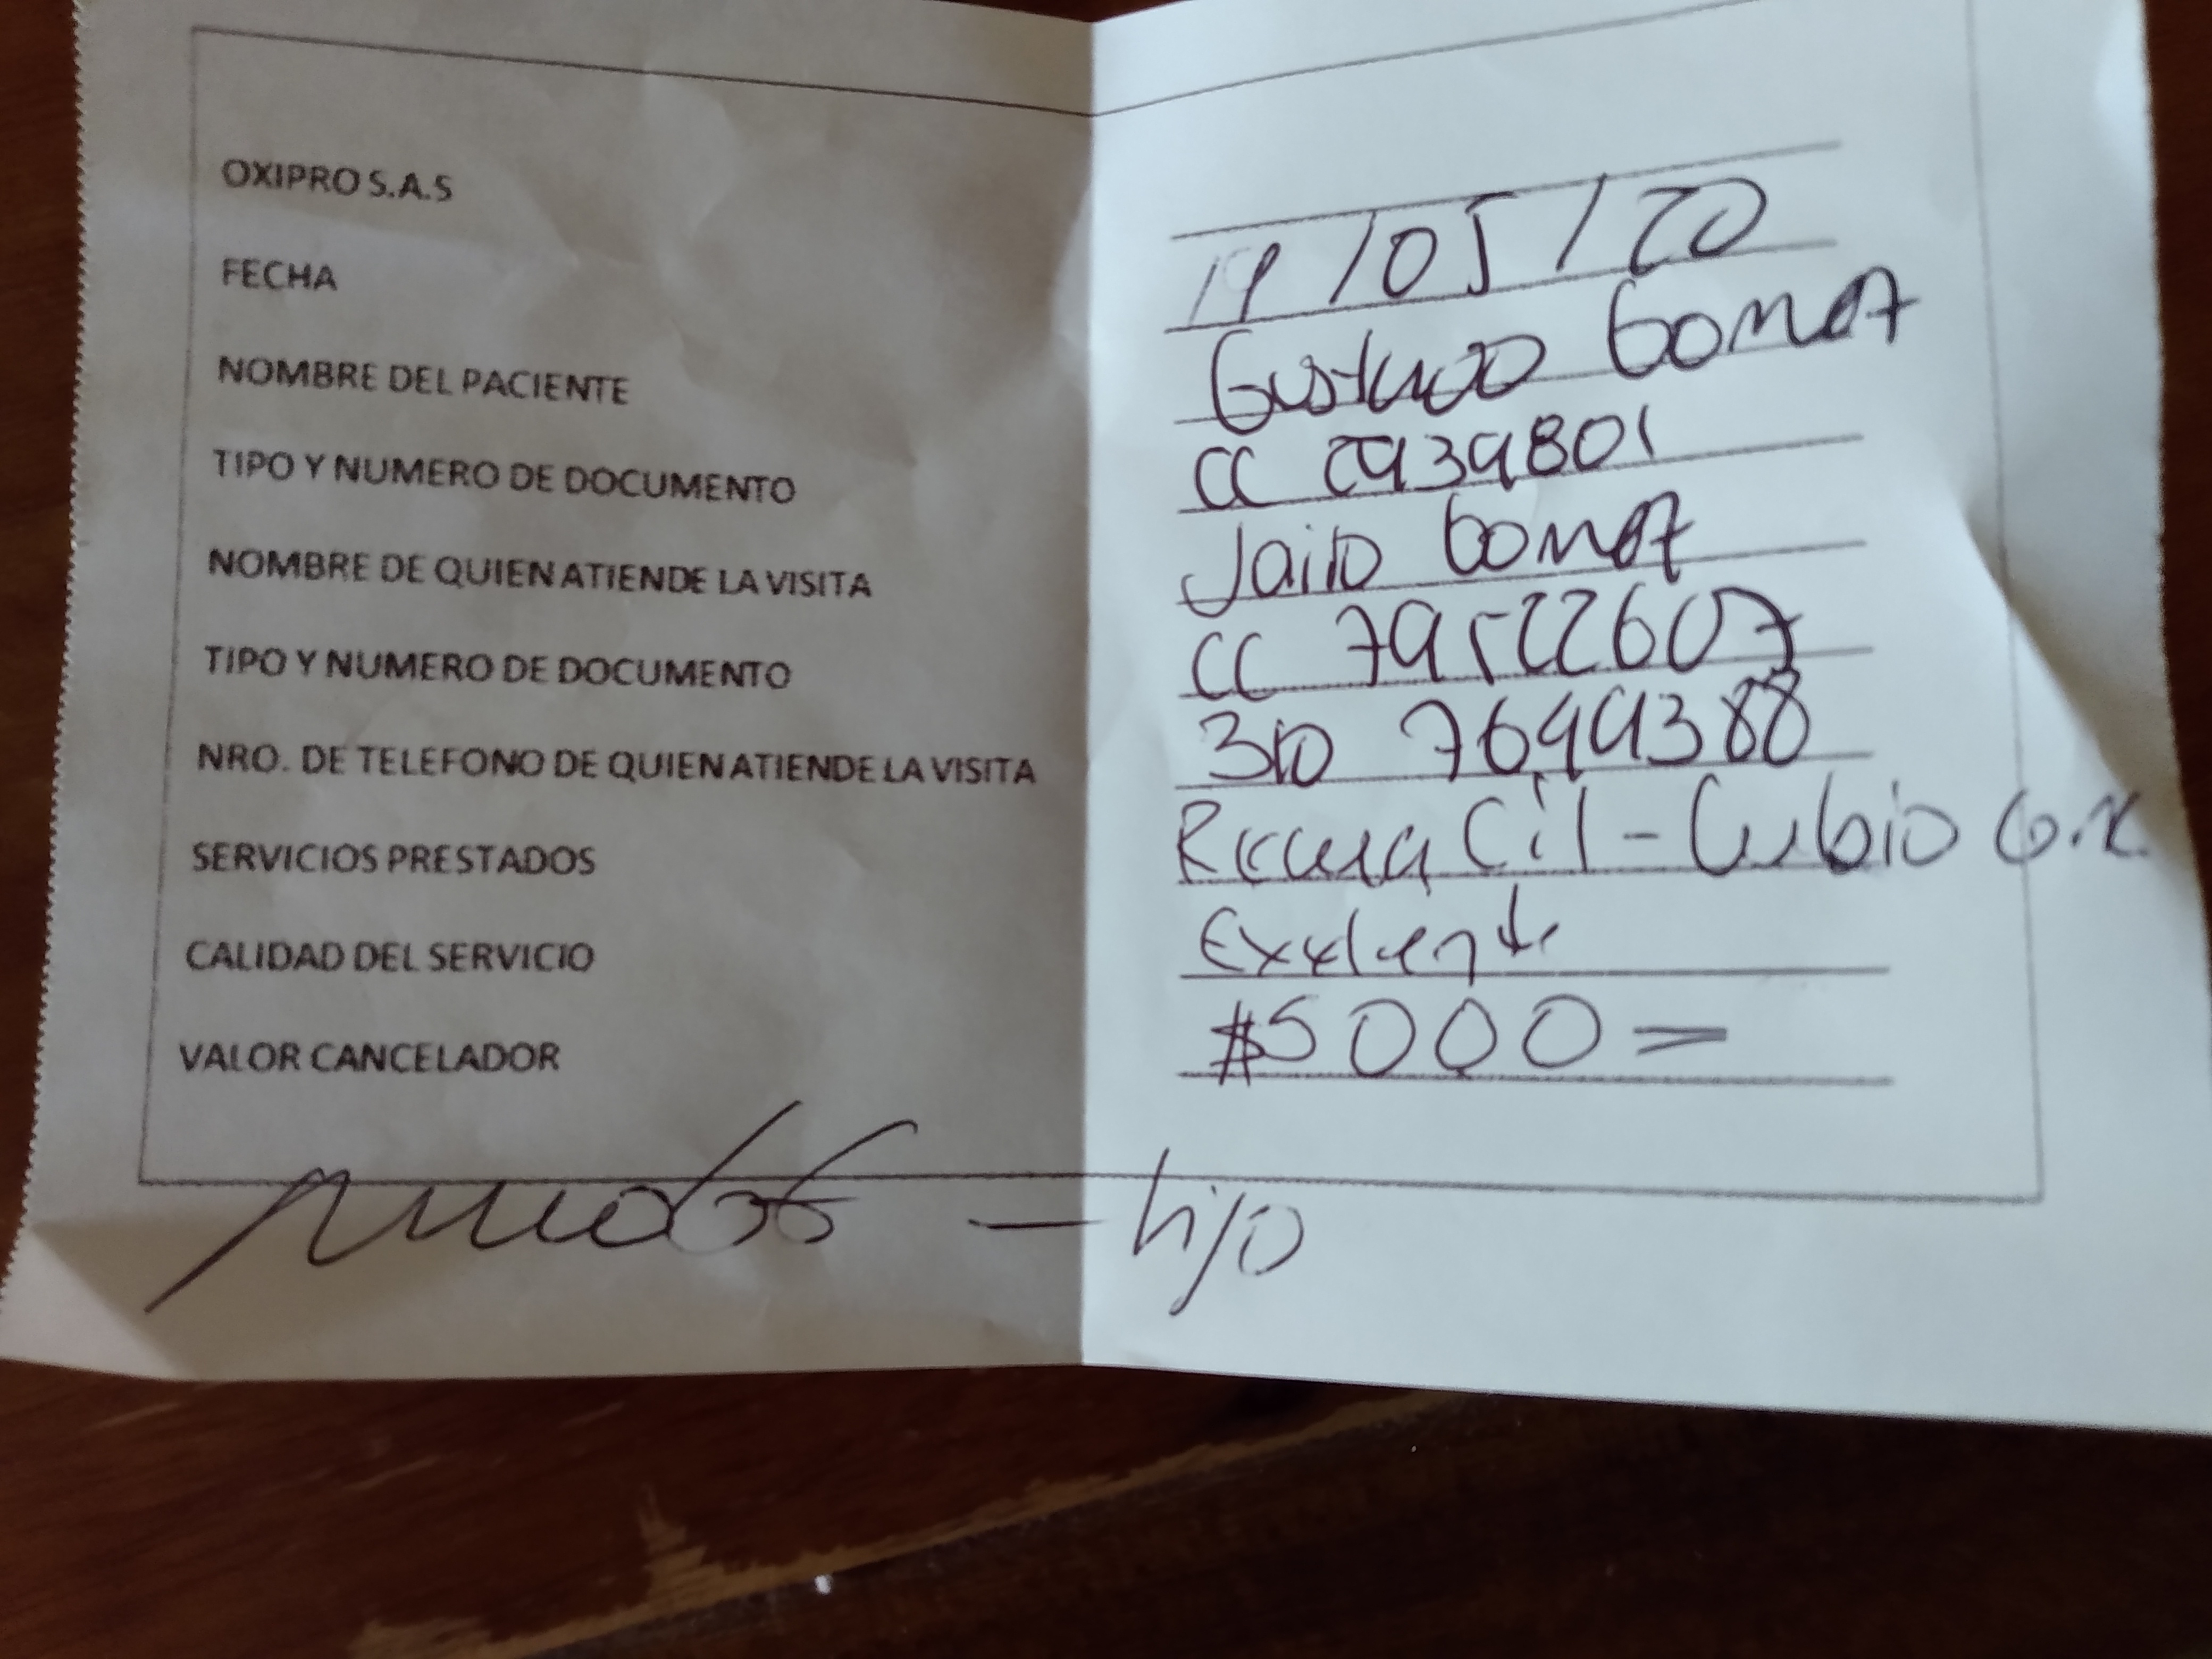 OXIPRO S.A.S
FECHA 19/05/20
NOMBRE DEL PACIENTE Gustavo Gomez
TIPO Y NUMERO DE DOCUMENTO CC 2939801
NOMBRE DE QUIEN ATIENDE LA VISITA Jairo Gomez
TIPO Y NUMERO DE DOCUMENTO CC 79522607
NRO. DE TELEFONO DE QUIEN ATIENDE LA VISITA 310 7699388
SERVICIOS PRESTADOS Cil - Cubio
CALIDAD DEL SERVICIO Exelente
VALOR CANCELADOR $5000=
— hijo